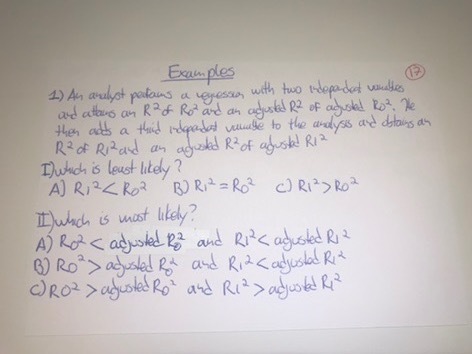 Examples
12
1) An analyst performs a regression with two independent variables
and attains an R² of R0² and an adjusted R² of adjusted R0². He
then adds a third independent variable to the analysis and obtains an
R² of R1² and an adjusted R² of adjusted R1²
I) Which is least likely?
A) R1² < R0² B) R1² = R0² C) R1² > R0²
II) Which is most likely?
A) R0² < adjusted R0² and R1² < adjusted R1²
B) R0² > adjusted R0² and R1² < adjusted R1²
C) R0² > adjusted R0² and R1² > adjusted R1²